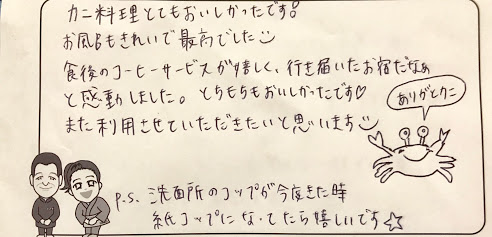 カニ料理とてもおいしかったです。
お風呂もきれいで最高でした
食後のコーヒーサービスが嬉しく、行き届いたお宿だなぁ
と感動しました。とちもちもおいしかったです♡
また利用させていただきたいと思います
ありがとカニ
P.S. 洗面所のコップが今夜きた時
紙コップになってたら嬉しいです☆